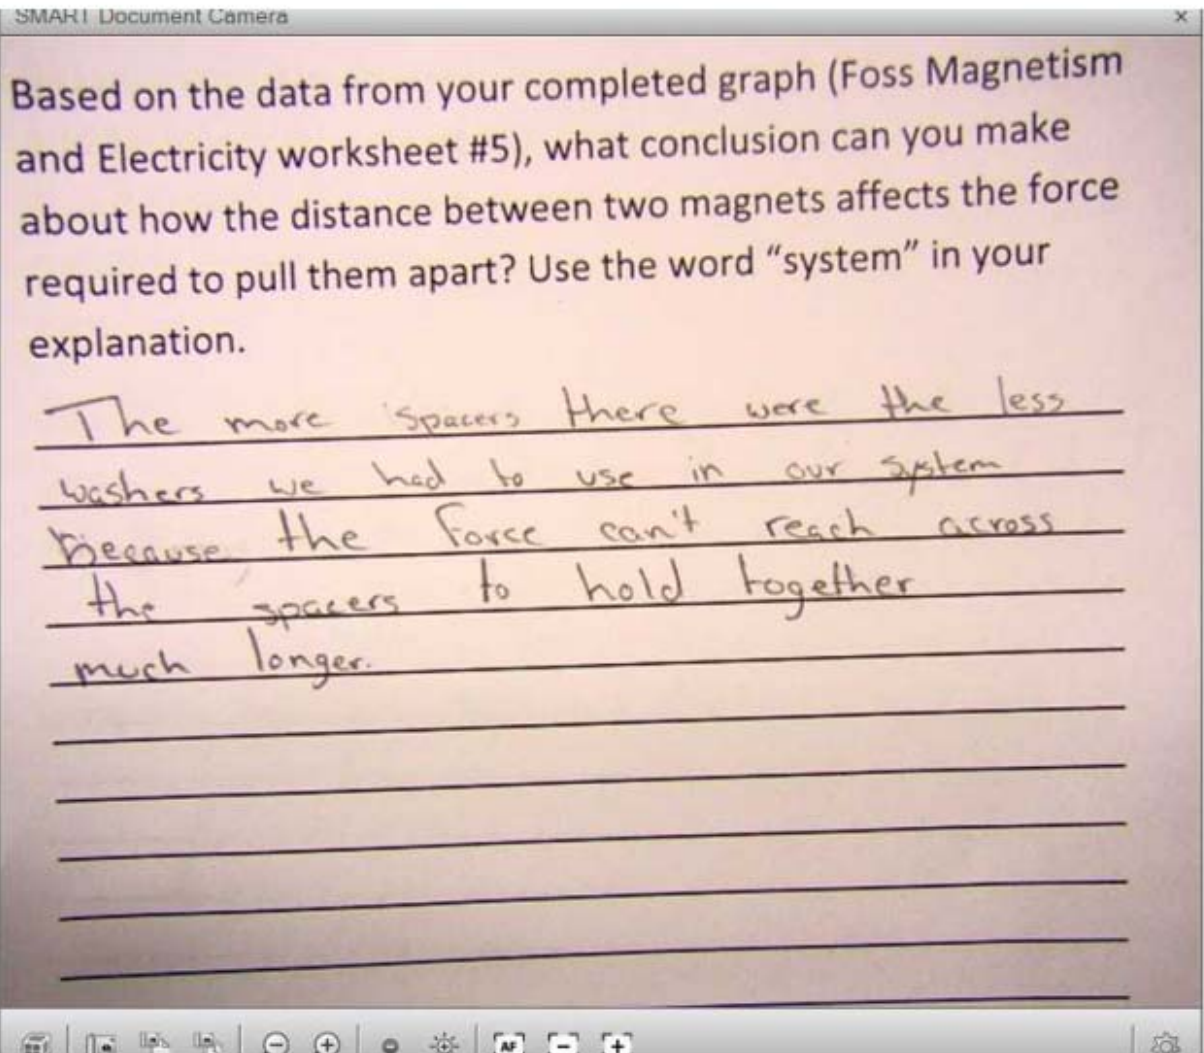 SMART Document Camera
Based on the data from your completed graph (Foss Magnetism
and Electricity worksheet #5), what conclusion can you make
about how the distance between two magnets affects the force
required to pull them apart? Use the word “system” in your
explanation.
The more spacers there were the less
washers we had to use in our system
because the force can't reach across
the spacers to hold together
much longer.
AF